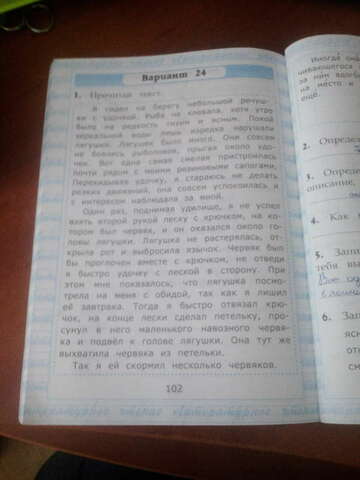 Вариант 24
1. Прочитай текст.
Я сидел на берегу небольшой речуш-
ки с удочкой. Рыба не клевала, хотя утро
было на редкость тихим и ясным. Покой
зеркальной воды лишь изредка нарушали
лягушки. Лягушек было много. Они совсем
не боялись рыболовов, прыгая около удо-
чек. Вот одна самая смелая пристроилась
почти рядом с моими резиновыми сапогами.
Перекидывая удочку, я стараюсь не делать
резких движений, она совсем успокоилась и
с интересом наблюдала за мной.
Один раз, поднимая удилище, я не успел
взять второй рукой леску с крючком, на ко-
тором был червяк, и он оказался около го-
ловы лягушки. Лягушка не растерялась, от-
крыла рот и выбросила язычок. Червяк было
бы проглочен вместе с крючком, не отведи
я быстро удочку с леской в сторону. При
этом мне показалось, что лягушка посмо-
трела на меня с обидой, так как я лишил
её завтрака. Тогда я быстро отвязал крю-
чок, на конце лески сделал петельку, про-
сунул в него маленького навозного червя-
ка и подвёл к голове лягушки. Она тут же
выхватила червяка из петельки.
Так я ей скормил несколько червяков.
102
литературное чтение литературное чтение
Иногда она
чивающегося
за ним вдого
на место и
ещё.
2. Определ
3. Опреде
описание,
4. Как
5. Запи
тебя вы
6. Зап
ясн
от
см